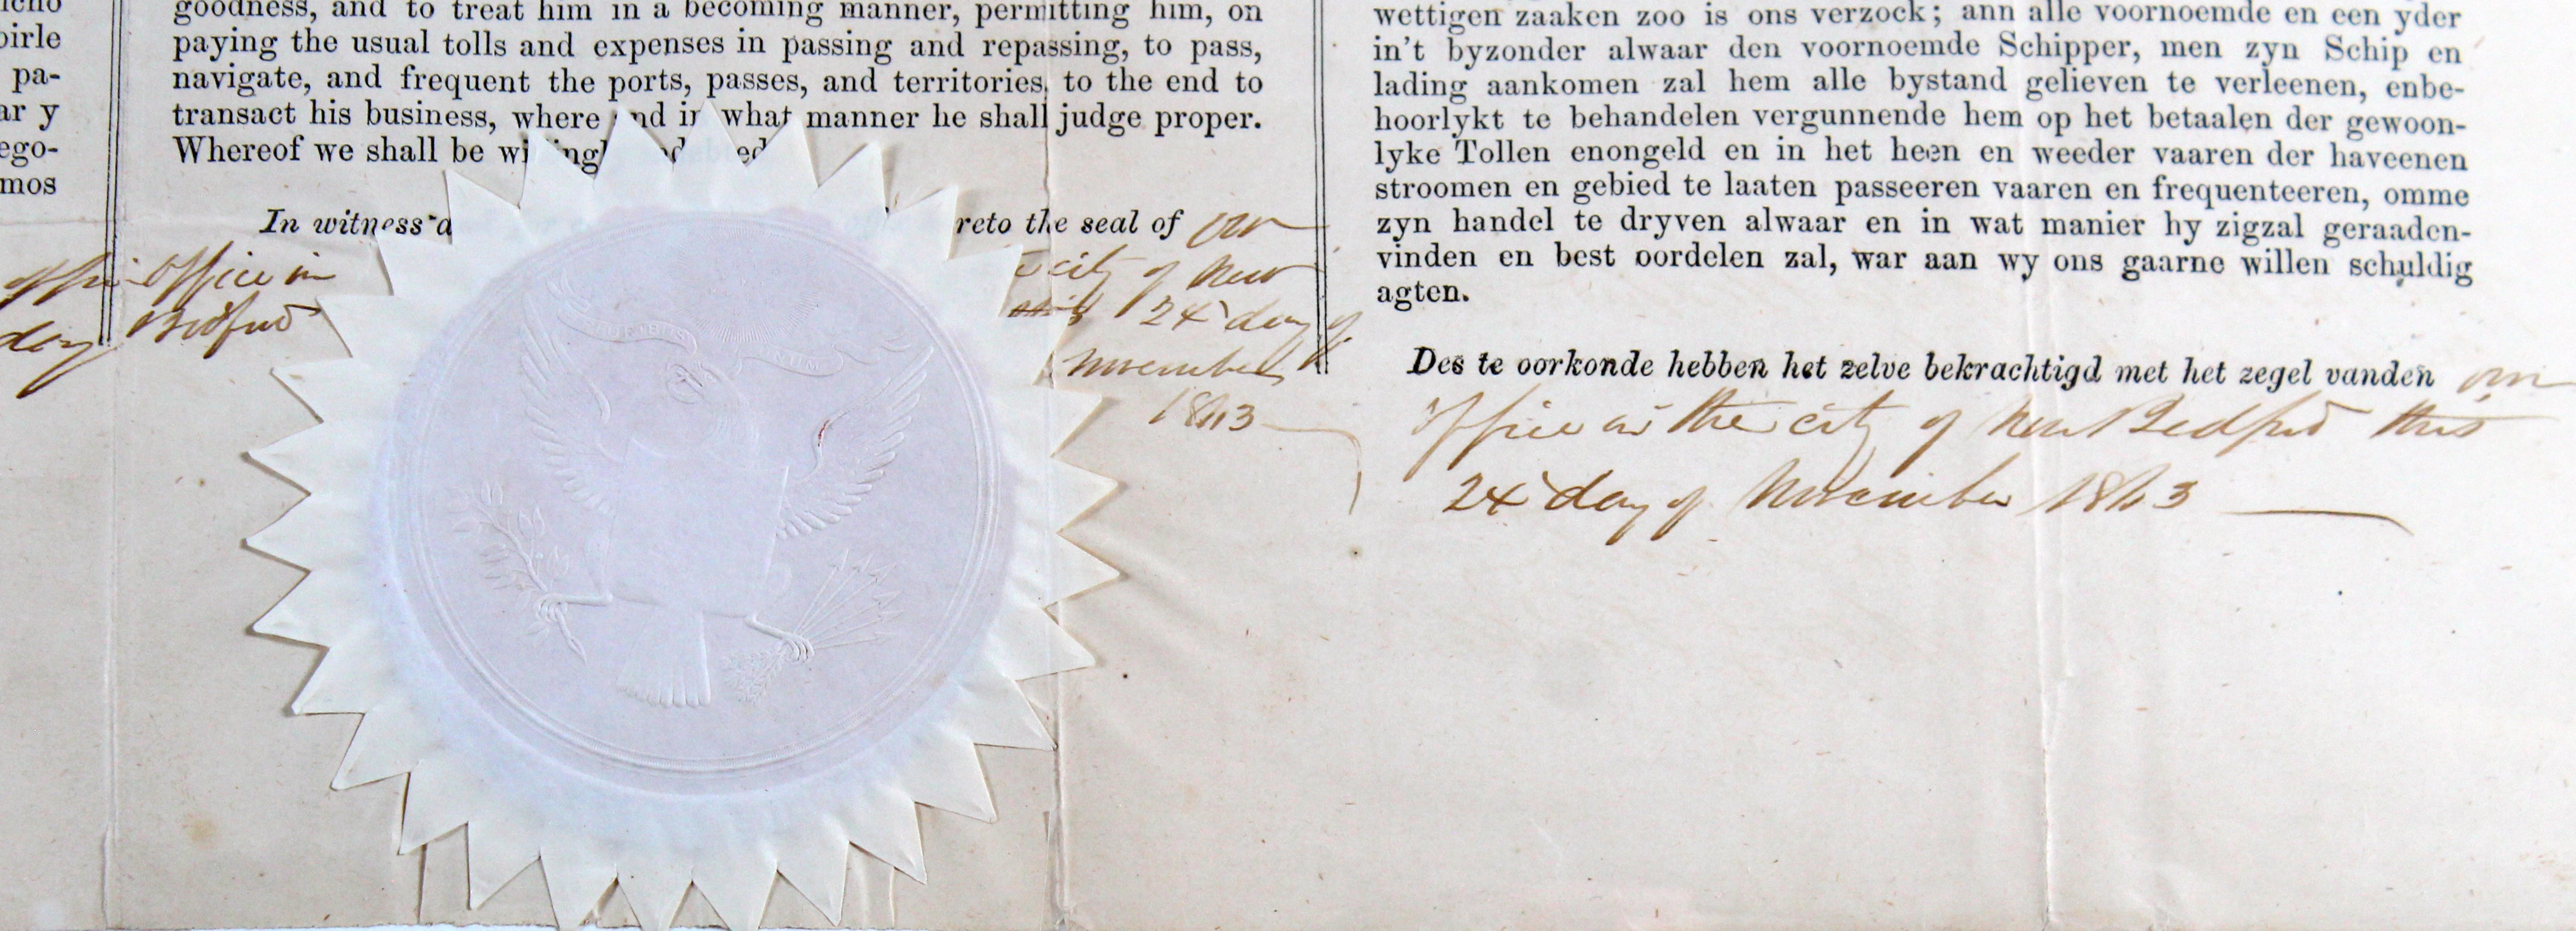 oirle
pa-
ar y
ego-
mos
day
goodness, and to treat him in a becoming manner, permitting him, on
paying the usual tolls and expenses in passing and repassing, to pass,
navigate, and frequent the ports, passes, and territories, to the end to
transact his business, where and in what manner he shall judge proper.
Whereof we shall be
In witness reto the seal of our
office in city of New
Bedford this 24 day of
November
1863
UNUM
wettigen zaaken zoo is ons verzock; ann alle voornoemde en een yder
in't byzonder alwaar den voornoemde Schipper, men zyn Schip en
lading aankomen zal hem alle bystand gelieven te verleenen, enbe-
hoorlykt te behandelen vergunnende hem op het betaalen der gewoon-
lyke Tollen enongeld en in het heen en weeder vaaren der haveenen
stroomen en gebied te laaten passeeren vaaren en frequenteeren, omme
zyn handel te dryven alwaar en in wat manier hy zigzal geraaden-
vinden en best oordelen zal, war aan wy ons gaarne willen schuldig
agten.
Des te oorkonde hebben het zelve bekrachtigd met het zegel vanden our
office in the city of New Bedford this
24 day of November 1863